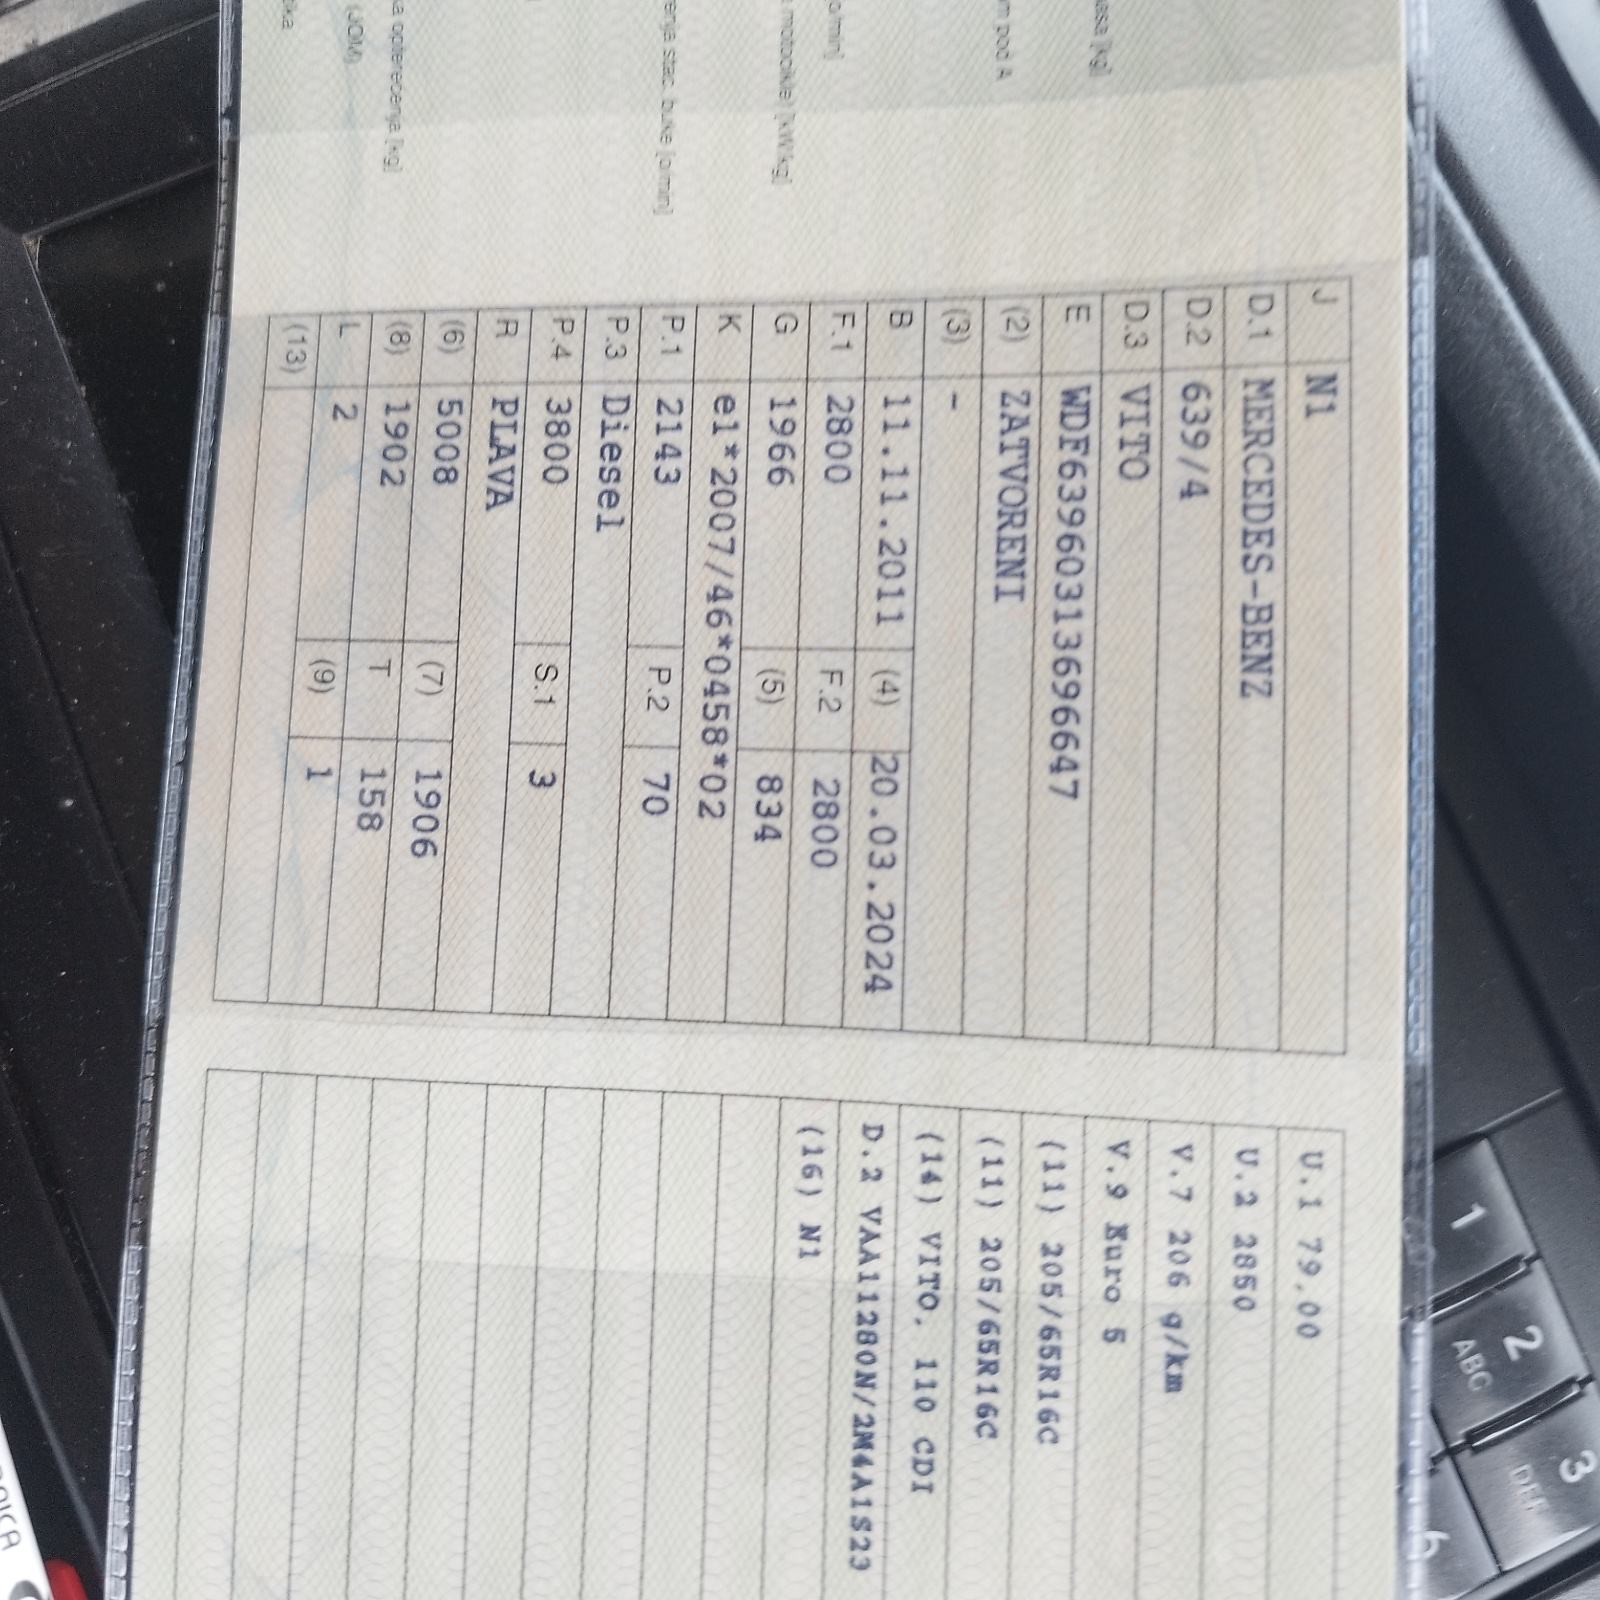 asa [kg]
m pod A
o/min]
motocikle) [kW/kg]
enja stac. buke [o/min]
a opterećenja [kg]
(JOM)
J N1
D.1 MERCEDES-BENZ
D.2 639/4
D.3 VITO
E WDF63960313696647
(2) ZATVORENI
(3) -
B 11.11.2011 (4) 20.03.2024
F.1 2800 F.2 2800
G 1966 (5) 834
K e1*2007/46*0458*02
P.1 2143 P.2 70
P.3 Diesel
P.4 3800 S.1 3
R PLAVA
(6) 5008 (7) 1906
(8) 1902 T 158
L 2 (9) 1
(13)
U.1 79,00
U.2 2850
V.7 206 g/km
V.9 Euro 5
(11) 205/65R16C
(11) 205/65R16C
(14) VITO, 110 CDI
D.2 VAA11280N/2M4A1S23
(16) N1
1
2
ABC
3
DEF
6